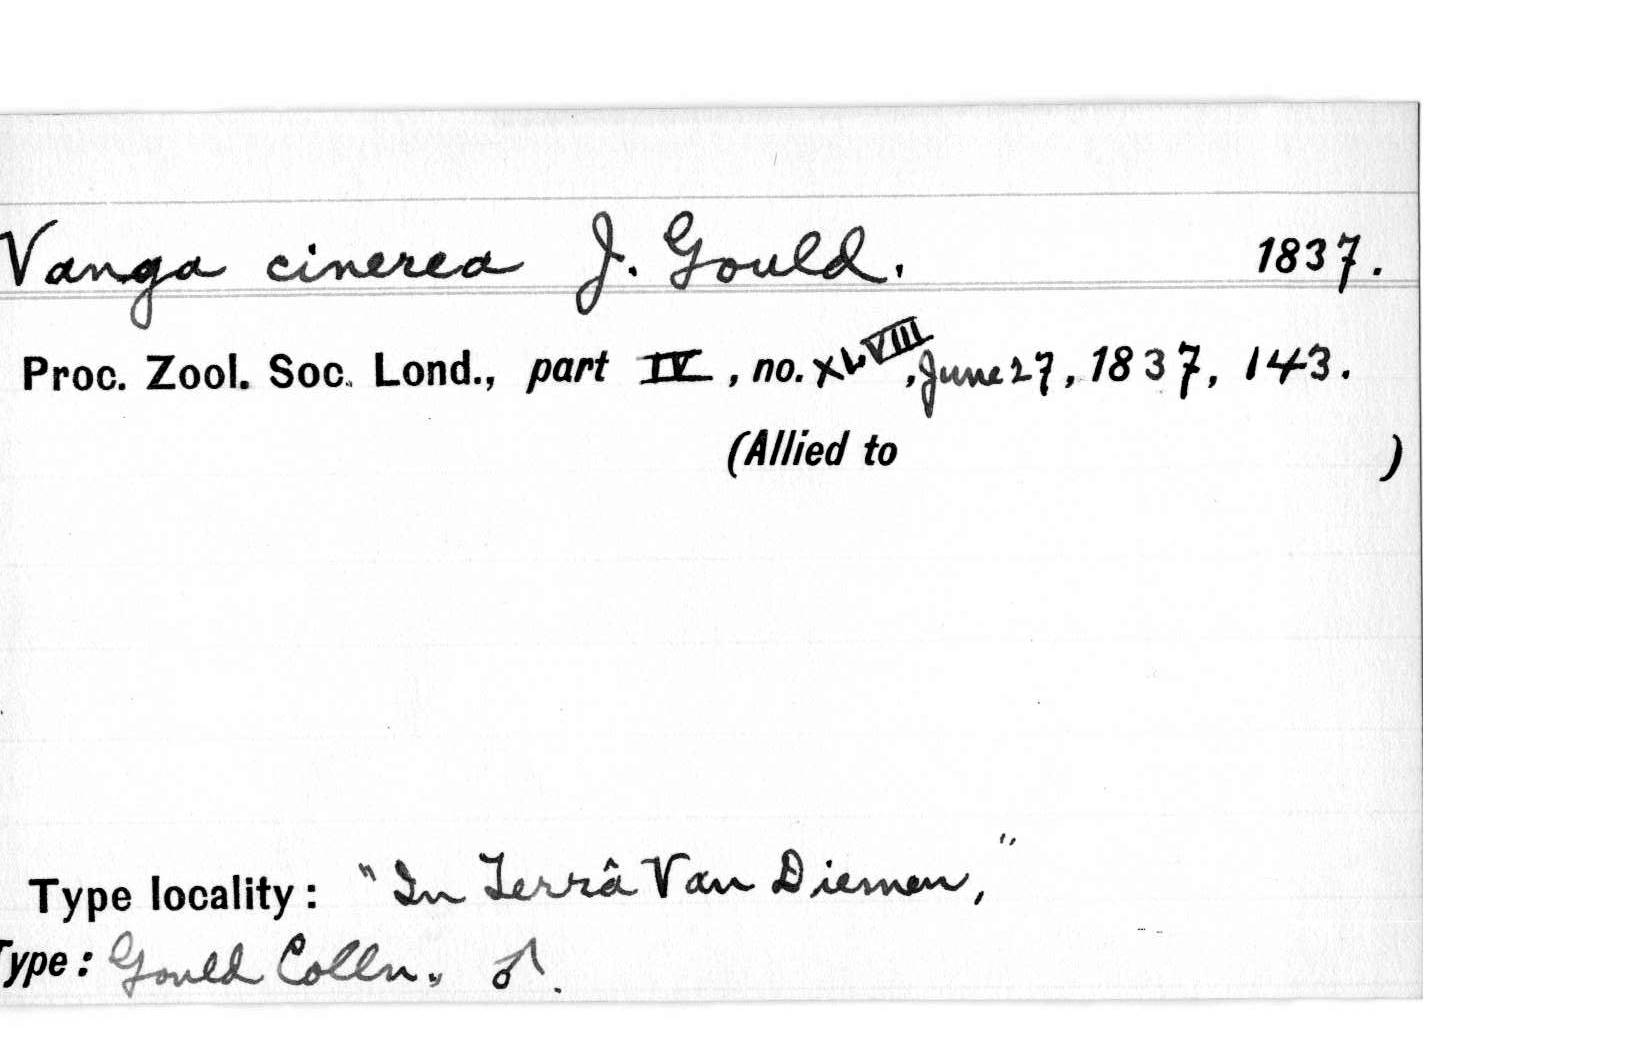 Vanga cinerea J. Gould. 1837.
Proc. Zool. Soc. Lond., part IV, no. XLVIII, June 27, 1837, 143.
(Allied to )
Type locality: "In Terrâ Van Diemen,"
Type: Gould Colln. ♂.